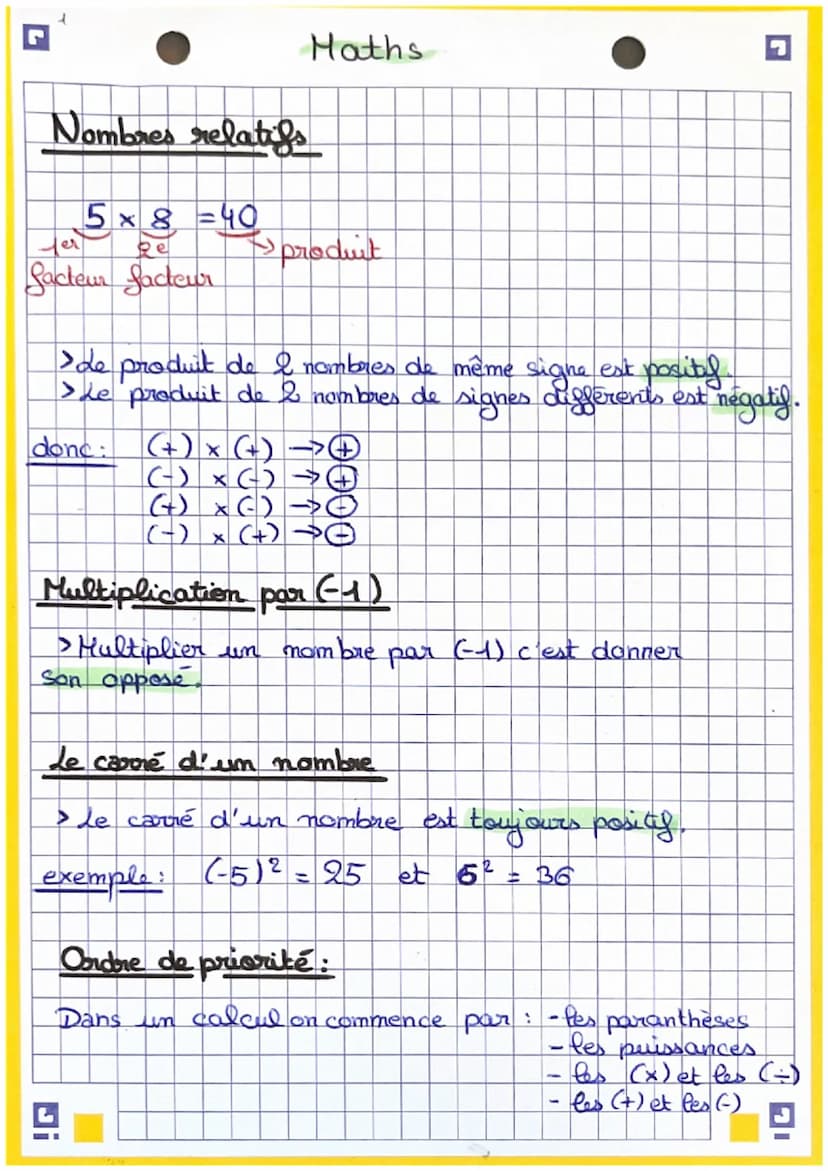 1
Maths
Nombres relatifs
5 x 8 = 40
1er 2e → produit
facteur facteur
> Le produit de 2 nombres de même signe est positif.
> Le produit de 2 nombres de signes différents est négatif.
donc : (+) x (+) → ⊕
(-) x (-) → ⊕
(+) x (-) → ⊖
(-) x (+) → ⊖
Multiplication par (-1)
> Multiplier un nombre par (-1) c'est donner
son opposé.
Le carré d'un nombre
> Le carré d'un nombre est toujours positif.
exemple : (-5)² = 25 et 6² = 36
Ordre de priorité :
Dans un calcul on commence par : - les paranthèses
- les puissances
- les (x) et les (÷)
- les (+) et les (-)